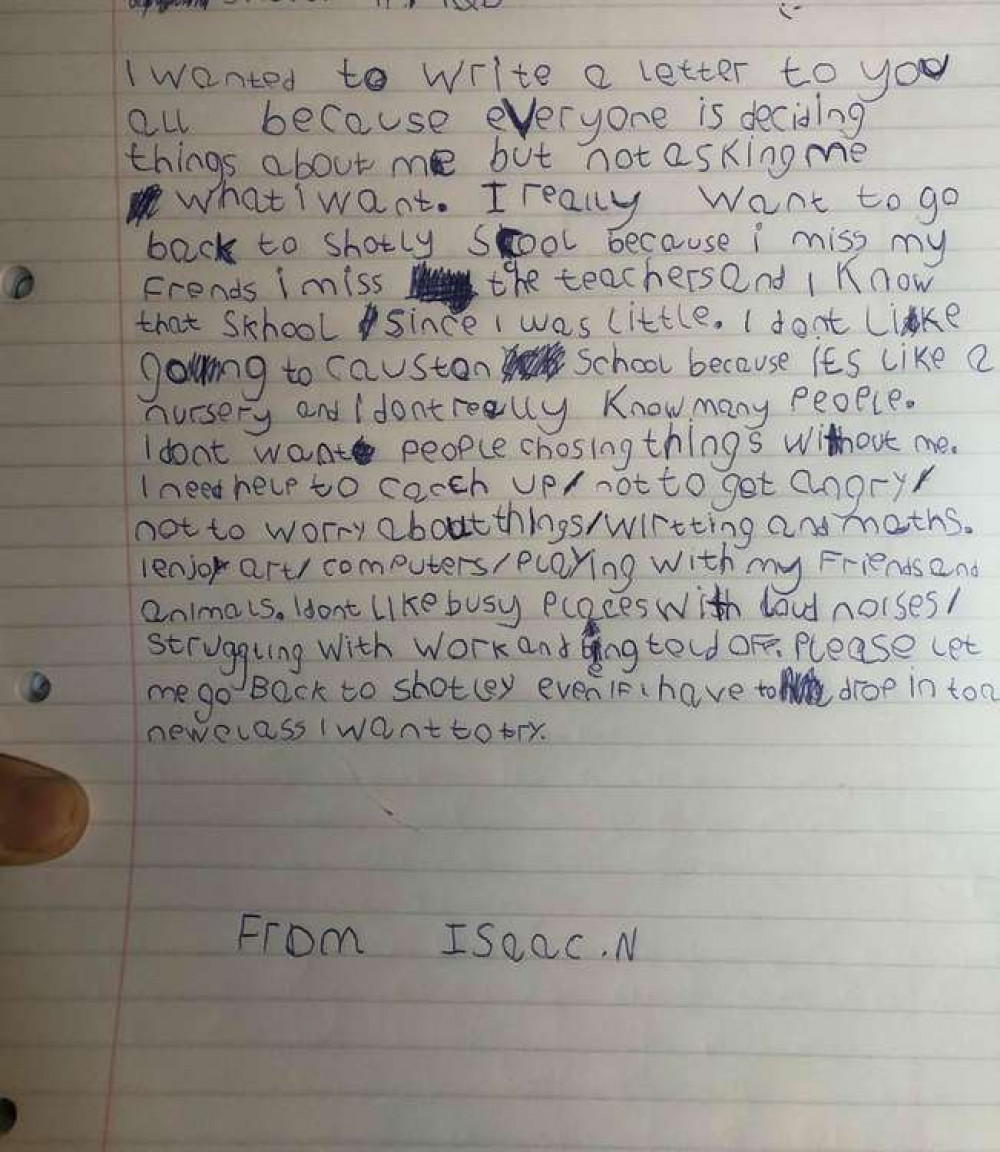 I wanted to write a letter to you
all because everyone is deciding
things about me but not asking me
what i want. I really want to go
back to shotly Scool because i miss my
Frends i miss the teachers and I know
that Skhool Since I was little. I dont Like
going to causton School because its like a
nursery and I dont really know many people.
I dont want people chosing things without me.
I need help to catch up/ not to get angry/
not to worry about things/wirtting and maths.
I enjoy art/ computers/playing with my Friends and
animals. I dont like busy places with loud noises/
struggling with work and being told off. Please let
me go Back to shotley even if i have to drop in to a
new class I want to try.
From Isaac.N